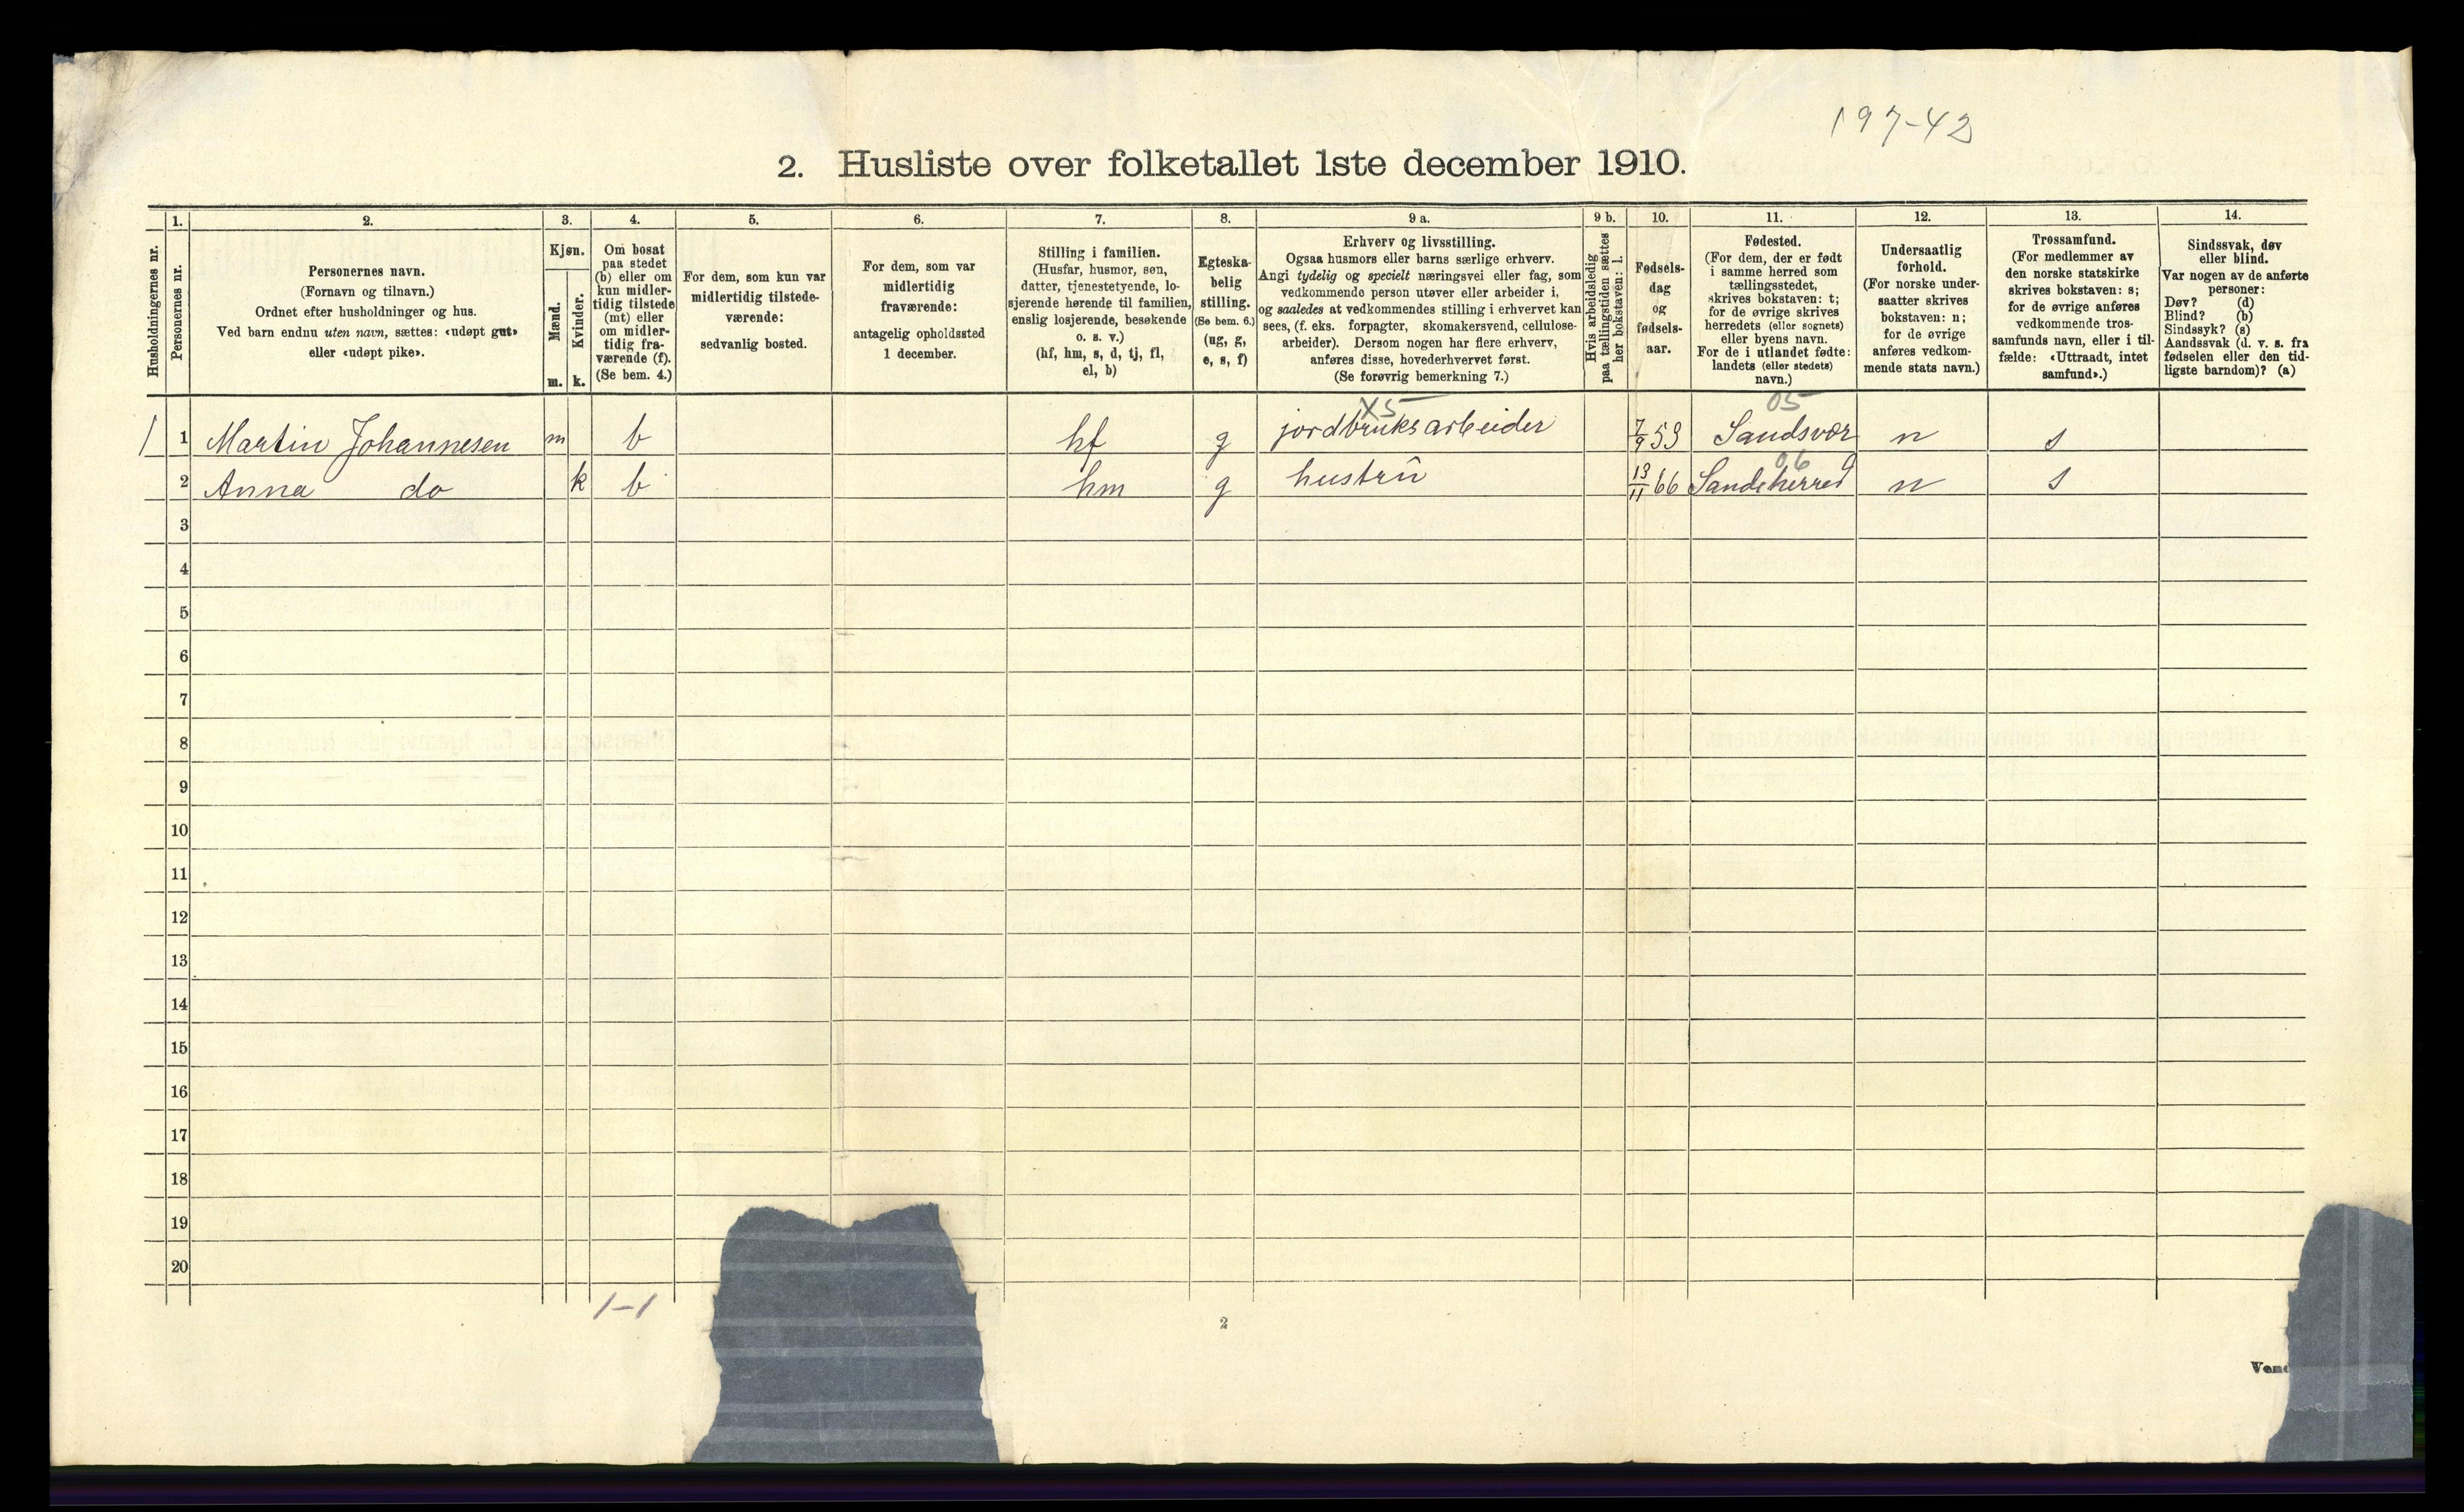 197-42
2. Husliste over folketallet 1ste december 1910.
Husholdningernes nr.
1.
Personernes nr.
2.
Personernes navn.
(Fornavn og tilnavn.)
Ordnet efter husholdninger og hus.
Ved barn endnu uten navn, sættes: «udøpt gut»
eller «udøpt pike».
3.
Kjøn.
Mænd.
m.
Kvinder.
k.
4.
Om bosat
paa stedet
(b) eller om
kun midler-
tidig tilstede
(mt) eller
om midler-
tidig fra-
værende (f).
(Se bem. 4.)
5.
For dem, som kun var
midlertidig tilstede-
værende:
sedvanlig bosted.
6.
For dem, som var
midlertidig
fraværende:
antagelig opholdssted
1 december.
7.
Stilling i familien.
(Husfar, husmor, søn,
datter, tjenestetyende, lo-
sjerende hørende til familien,
enslig losjerende, besøkende
o. s. v.)
(hf, hm, s, d, tj, fl,
el, b)
8.
Egteska-
belig
stilling.
(Se bem. 6.)
(ug, g,
e, s, f)
9 a.
Erhverv og livsstilling.
Ogsaa husmors eller barns særlige erhverv.
Angi tydelig og specielt næringsvei eller fag, som
vedkommende person utøver eller arbeider i,
og saaledes at vedkommendes stilling i erhvervet kan
sees, (f. eks. forpagter, skomakersvend, cellulose-
arbeider). Dersom nogen har flere erhverv,
anføres disse, hovederhvervet først.
(Se forøvrig bemerkning 7.)
9 b.
Hvis arbeidsledig
paa tællingstiden sættes
her bokstaven: l.
10.
Fødsels-
dag
og
fødsels-
aar.
11.
Fødested.
(For dem, der er født
i samme herred som
tællingsstedet,
skrives bokstaven: t;
for de øvrige skrives
herredets (eller sognets)
eller byens navn.
For de i utlandet fødte:
landets (eller stedets)
navn.)
12.
Undersaatlig
forhold.
(For norske under-
saatter skrives
bokstaven: n;
for de øvrige
anføres vedkom-
mende stats navn.)
13.
Trossamfund.
(For medlemmer av
den norske statskirke
skrives bokstaven: s;
for de øvrige anføres
vedkommende tros-
samfunds navn, eller i til-
fælde: «Uttraadt, intet
samfund».)
14.
Sindssvak, døv
eller blind.
Var nogen av de anførte
personer:
Døv? (d)
Blind? (b)
Sindssyk? (s)
Aandssvak (d. v. s. fra
fødselen eller den tid-
ligste barndom)? (a)
X5 05
1 1 Martin Johannesen m b hf g jordbruksarbeider 7/9 53 Sandsvær n s
06
2 Anna do k b hm g hustrû 13/11 66 Sandeherred n s
3
4
5
6
7
8
9
10
11
12
13
14
15
16
17
18
19
20
1-1
2
Vend